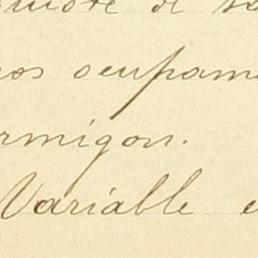 de
nos ocupam
ormigon.
Variable e